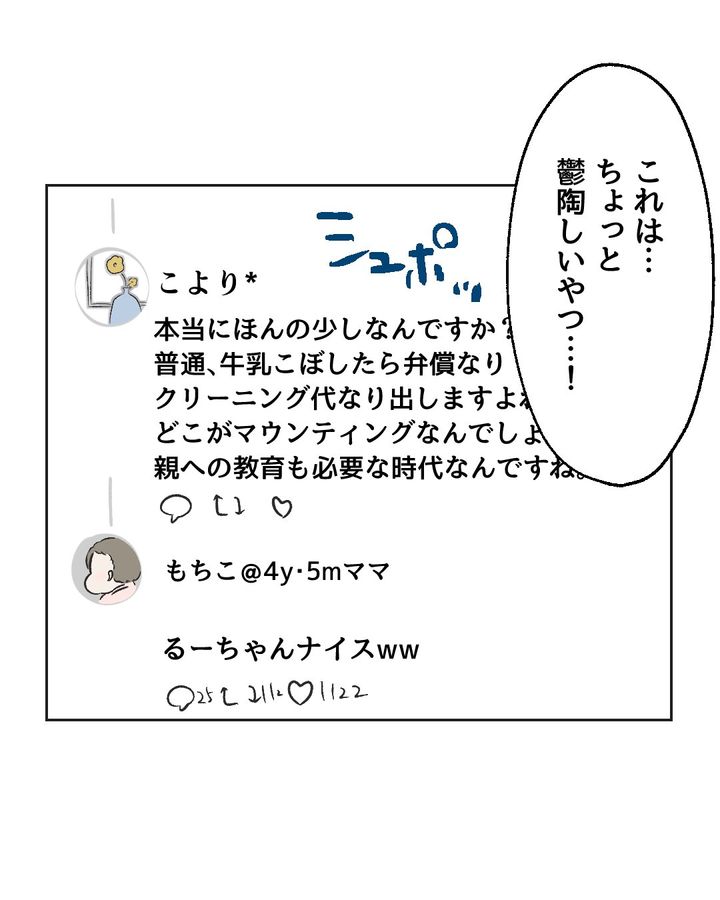 これは…
ちょっと
鬱陶しいやつ…！
シュポッ
こより*
本当にほんの少しなんですか？
普通、牛乳こぼしたら弁償なり
クリーニング代なり出しますよね
どこがマウンティングなんでしょ
親への教育も必要な時代なんですね。
もちこ@4y･5mママ
るーちゃんナイスww
25 2112 1122